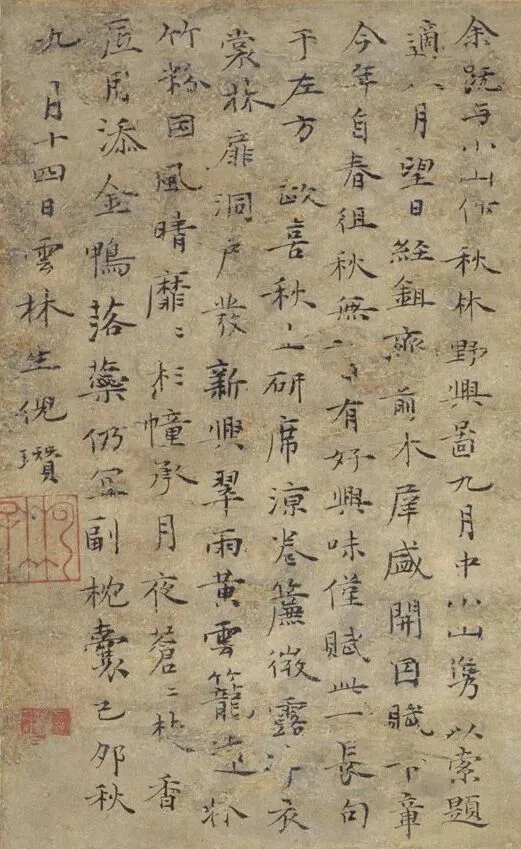 余既与小山作秋林野興啚九月中小山攜以索題
適八月望日經鉏齋前木犀盛開因賦下章
今年自春徂秋無一日有好興味僅賦此一長句
于左方 政喜秋生研席涼卷簾微露淨衣
裳林扉洞戶發新興翠雨黃雲籠遠牀
竹粉因風晴靡〻杉幢承月夜蒼〻焚香
底用添金鴨落蘂仍宜副枕囊己卯秋
九月十四日雲林生倪瓚